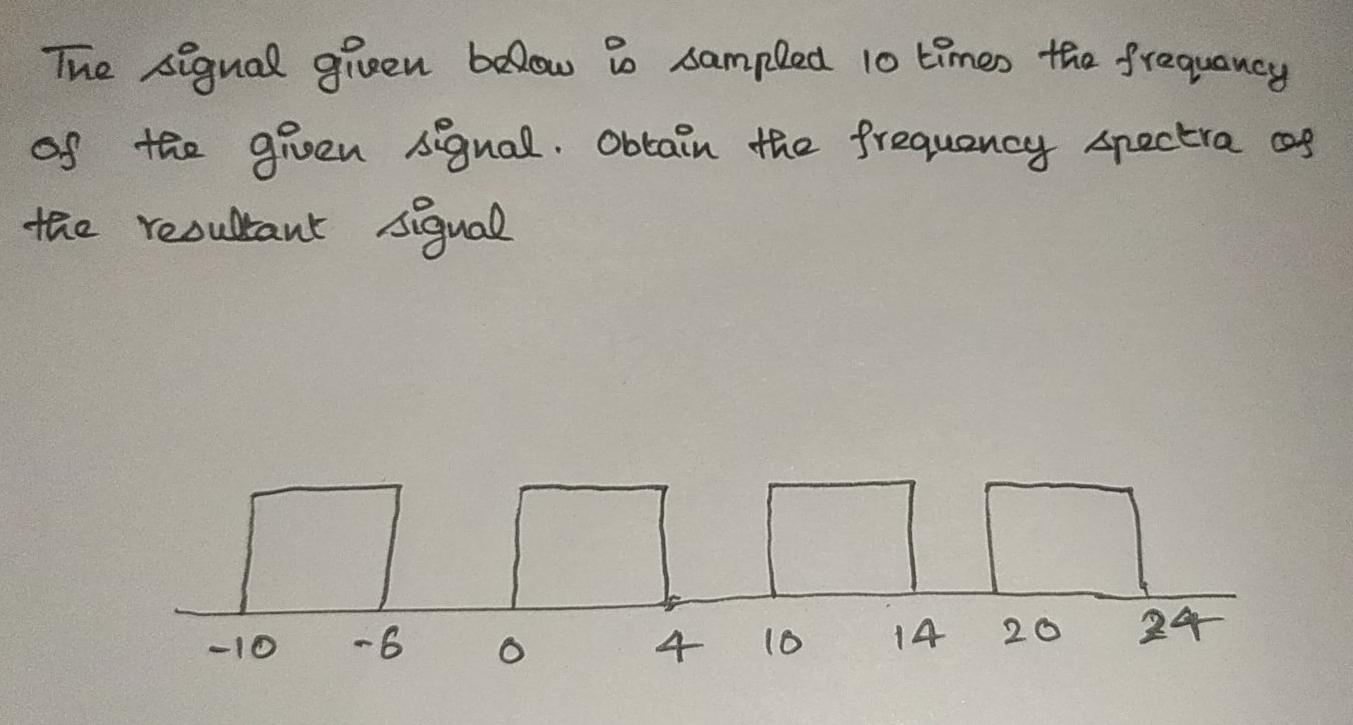 The signal given below is sampled 10 times the frequency
of the given signal. Obtain the frequency spectra of
the resultant signal
-10 -6 0 4 10 14 20 24